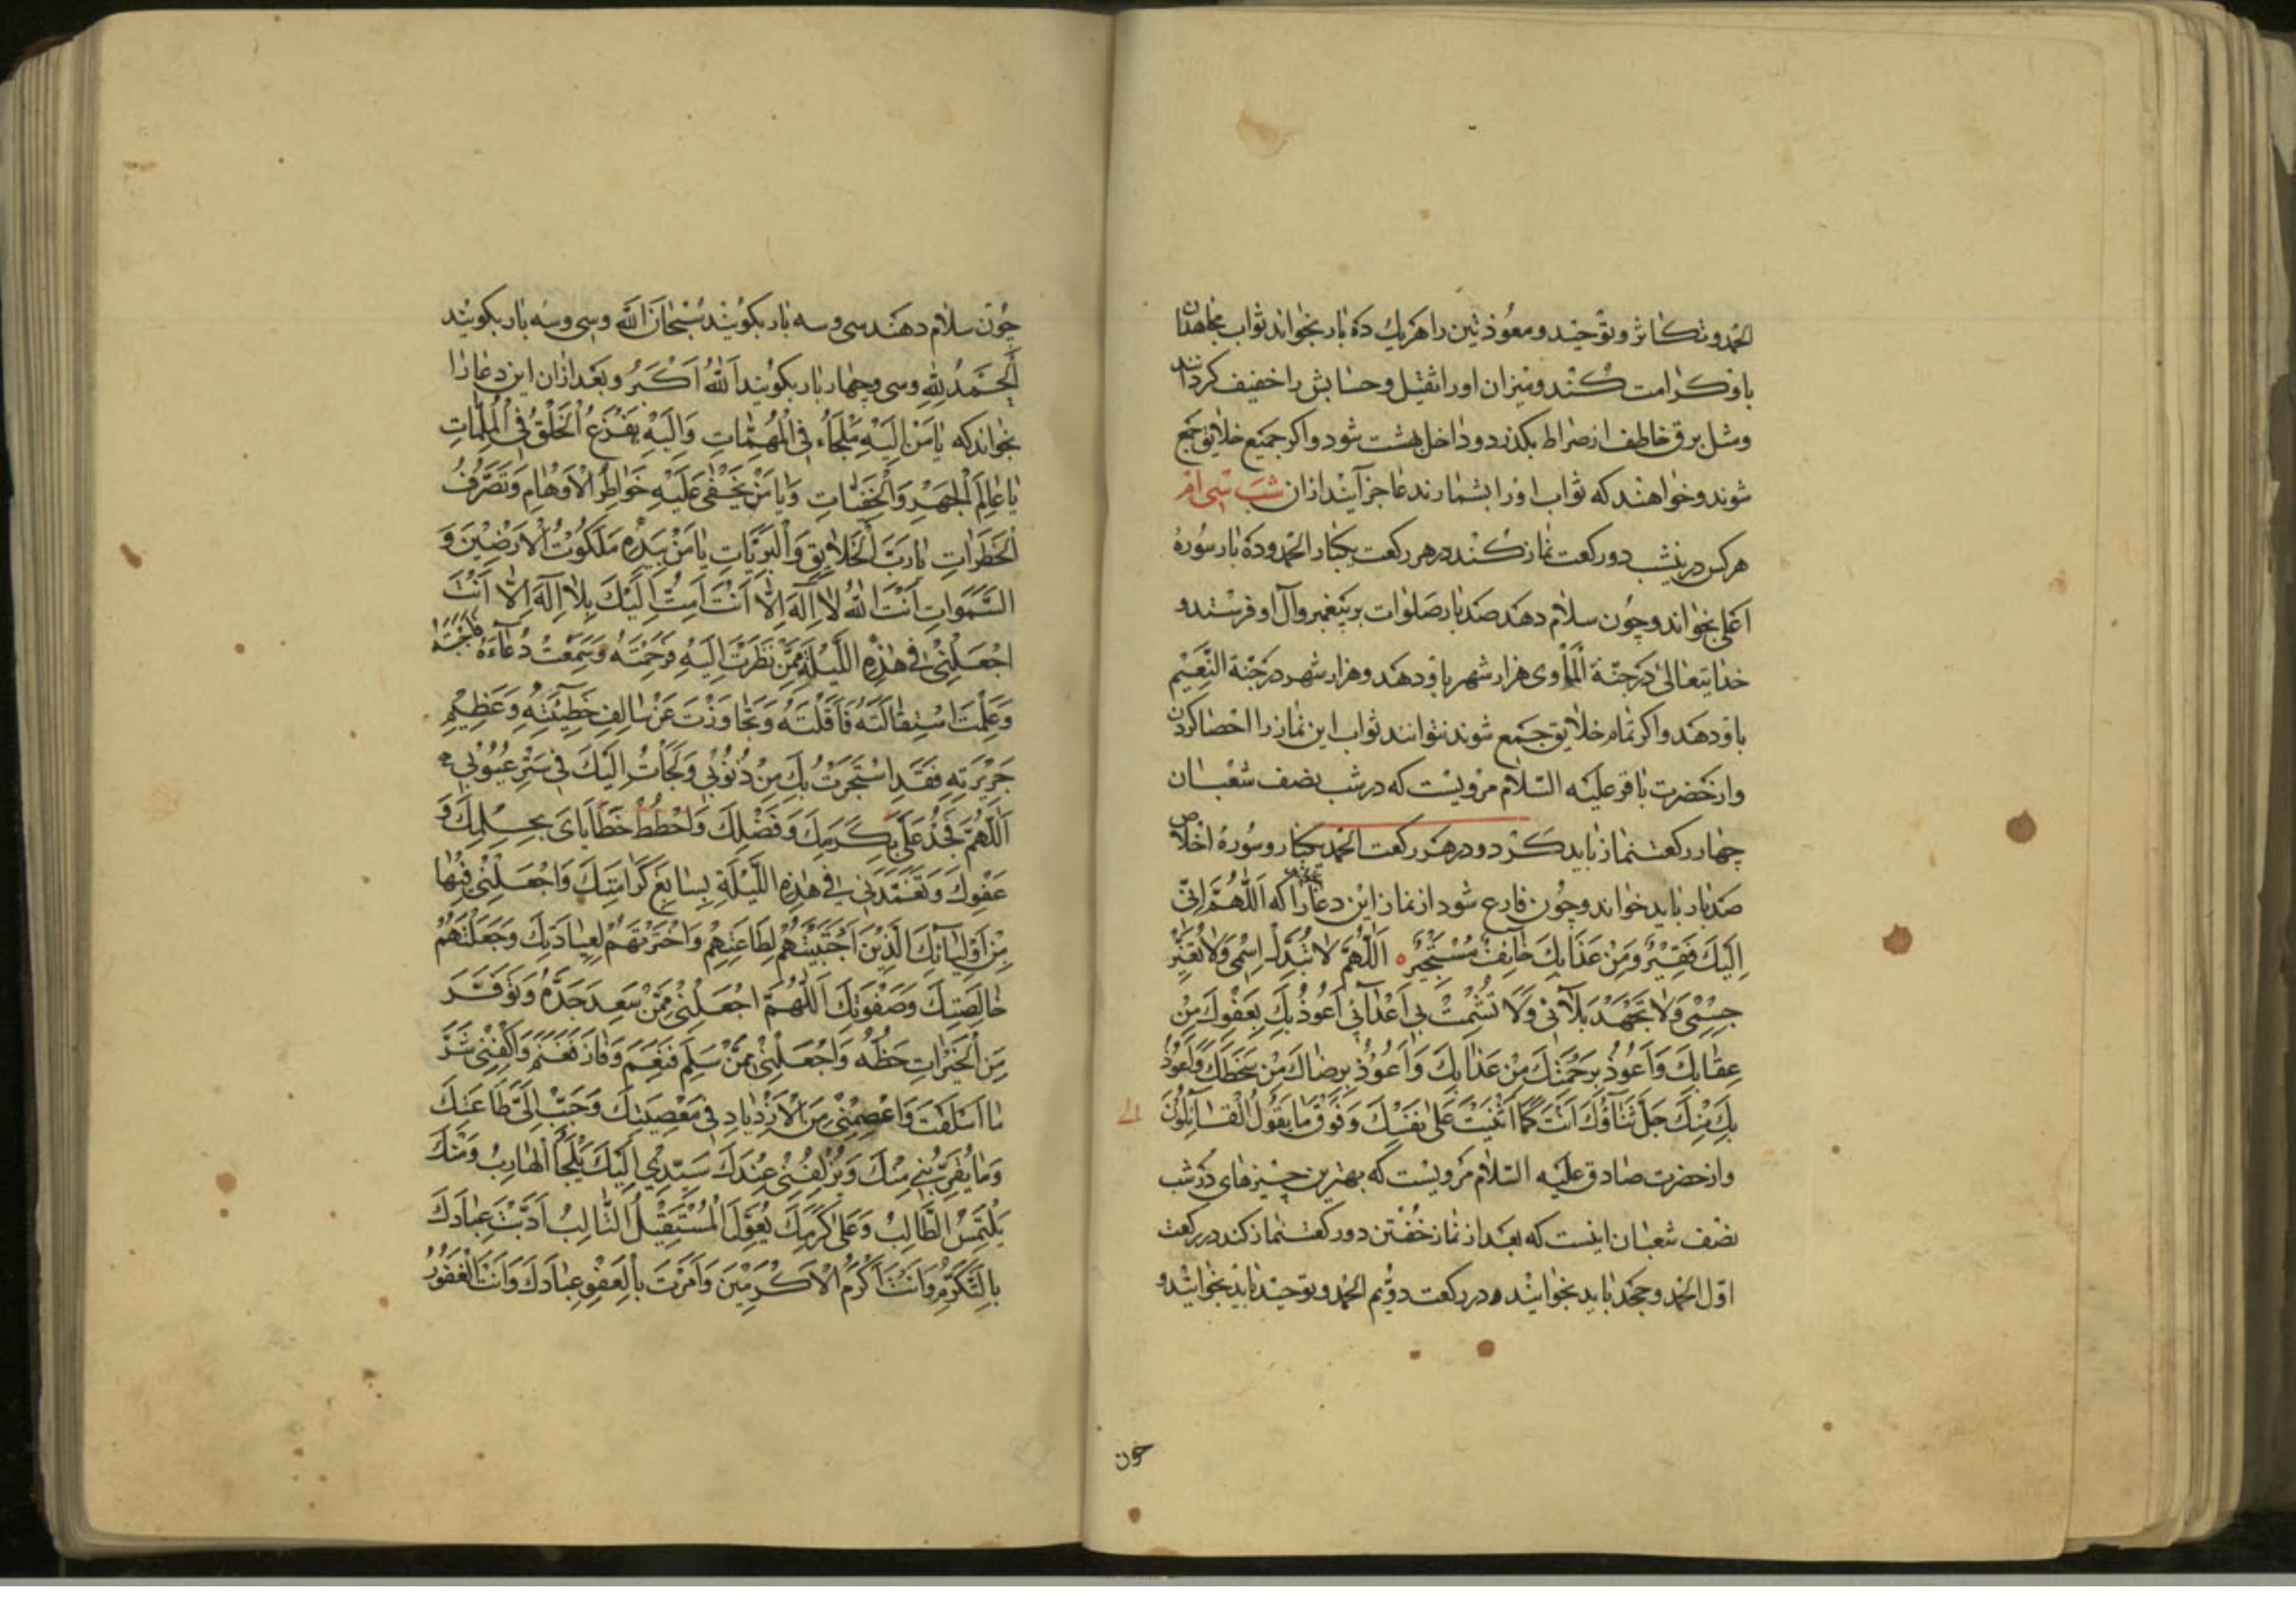 الحمد و تکاثر و توحید و معوذتین را هر یك ده بار بخواند ثواب مجاهدان
باو کرامت کنند و میزان او را ثقیل و حسابش را خفیف کردانند
و مثل برق خاطف از صراط بکذرد و داخل بهشت شود و اکر جمیع خلایق جمع
شوند و خواهند که ثواب او را بشمارند عاجز آیند از ان شب سی ام
هر کس درینشب دو رکعت نماز کند در هر رکعت یکبار الحمد و ده بار سوره
اعلی بخواند و چون سلام دهد صد بار صلوات بر پیغمبر و آل او فرستد و
خدایتعالی در جنّة المأوی هزار شهر باو دهد و هزار شهر در جنّة النّعیم
باو دهد و اکر تمام خلایق جمع شوند نتوانند ثواب این نماز را احصا کردن
و از حضرت باقر علیه السّلام مرویست که در شب نصف شعبان
چهار رکعت نماز باید کرد و در هر رکعت الحمد یکبار و سورهٔ اخلاص
صد بار باید خواند و چون فارغ شود از نماز این دعا را که اَللّهُمَّ اِنّی
اِلَیْكَ فَقیرٌ وَ مِنْ عَذابِكَ خائِفٌ مُسْتَجیرٌ اَللّهُمَّ لا تُبَدِّلْ اِسْمی وَلا تُغَیِّرْ
جِسْمی وَلا تَجْهَدْ بَلائی وَلا تُشْمِتْ بی اَعْدائی اَعُوذُ بِكَ بِعَفْوِكَ مِنْ
عِقابِكَ وَاَعُوذُ بِرَحْمَتِكَ مِنْ عَذابِكَ وَاَعُوذُ بِرِضاكَ مِنْ سَخَطِكَ وَاَعُوذُ
بِكَ مِنْكَ جَلَّ ثَناؤُكَ اَنْتَ كَما اَثْنَیْتَ عَلی نَفْسِكَ وَفَوْقَ ما یَقُولُ الْقائِلُونَ
و از حضرت صادق علیه السّلام مرویست که بهترین چیزهای در شب
نصف شعبان اینست که بعد از نماز خفتن دو رکعت نماز کند در رکعت
اوّل الحمد و جحد باید بخوانند و در رکعت دوّیم الحمد و توحید باید بخوانند و
چون
چون سلام دهند سی و سه بار بکویند سُبْحانَ اللّهِ و سی و سه بار بکویند
اَلْحَمْدُ لِلّهِ و سی و چهار بار بکویند اَللّهُ اَکْبَرُ و بعد از ان این دعا را
بخواند که یا مَنْ اِلَیْهِ مَلْجَاُ فِی الْمُهِمّاتِ وَاِلَیْهِ یَفْزَعُ الْخَلْقُ فِی الْمُلِمّاتِ
یا عالِمَ الْجَهْرِ وَالْخَفِیّاتِ وَیا مَنْ یَخْفی عَلَیْهِ خَواطِرُ الْاَوْهامِ وَتَصَرُّفُ
الْخَطَراتِ یا رَبَّ الْخَلایِقِ وَالْبَرِیّاتِ یا مَنْ بِیَدِهِ مَلَكُوتُ الْاَرَضینَ وَ
السَّمَواتِ اَنْتَ اللّهُ لا اِلهَ اِلّا اَنْتَ اَمُتُّ اِلَیْكَ بِلا اِلهَ اِلّا اَنْتَ
اجْعَلْنی فی هذِهِ اللَّیْلَةِ مِمَّنْ نَظَرْتَ اِلَیْهِ فَرَحِمْتَهُ وَسَمِعْتَ دُعاءَهُ فَاَجَبْتَهُ
وَعَلِمْتَ اسْتِقالَتَهُ فَاَقَلْتَهُ وَتَجاوَزْتَ عَنْ سالِفِ خَطیئَتِهِ وَعَظیمِ
جَریرَتِهِ فَقَدِ اسْتَجَرْتُ بِكَ مِنْ ذُنُوبی وَلَجَأْتُ اِلَیْكَ فی سَتْرِ عُیُوبی
اَللّهُمَّ فَجُدْ عَلَیَّ بِكَرَمِكَ وَفَضْلِكَ وَاحْطُطْ خَطایایَ بِحِلْمِكَ وَ
عَفْوِكَ وَتَغَمَّدْنی فی هذِهِ اللَّیْلَةِ بِسابِغِ كَرامَتِكَ وَاجْعَلْنی فیها
مِنْ اَوْلِیائِكَ الَّذینَ اجْتَبَیْتَهُمْ لِطاعَتِهِمْ وَاخْتَرْتَهُمْ لِعِبادَتِكَ وَجَعَلْتَهُمْ
خالِصَتِكَ وَصَفْوَتِكَ اَللّهُمَّ اجْعَلْنی مِمَّنْ سَعِدَ جَدُّهُ وَتَوَفَّرَ
مِنَ الْخَیْراتِ حَظُّهُ وَاجْعَلْنی مِمَّنْ سَلِمَ فَنَعِمَ وَفازَ فَغَنِمَ وَاكْفِنی شَرَّ
ما اَسْلَفْتُ وَاعْصِمْنی مِنَ الْاِزْدِیادِ فی مَعْصِیَتِكَ وَحَبِّبْ اِلَیَّ طاعَتَكَ
وَما یُقَرِّبُنی مِنْكَ وَیُزْلِفُنی عِنْدَكَ سَیِّدی اِلَیْكَ یَلْجَأُ الْهارِبُ وَمِنْكَ
یَلْتَمِسُ الطّالِبُ وَعَلی كَرَمِكَ یُعَوِّلُ الْمُسْتَقیلُ التّائِبُ اَدَّبْتَ عِبادَكَ
بِالتَّكَرُّمِ وَاَنْتَ اَكْرَمُ الْاَكْرَمینَ وَاَمَرْتَ بِالْعَفْوِ عِبادَكَ وَاَنْتَ الْغَفُورُ